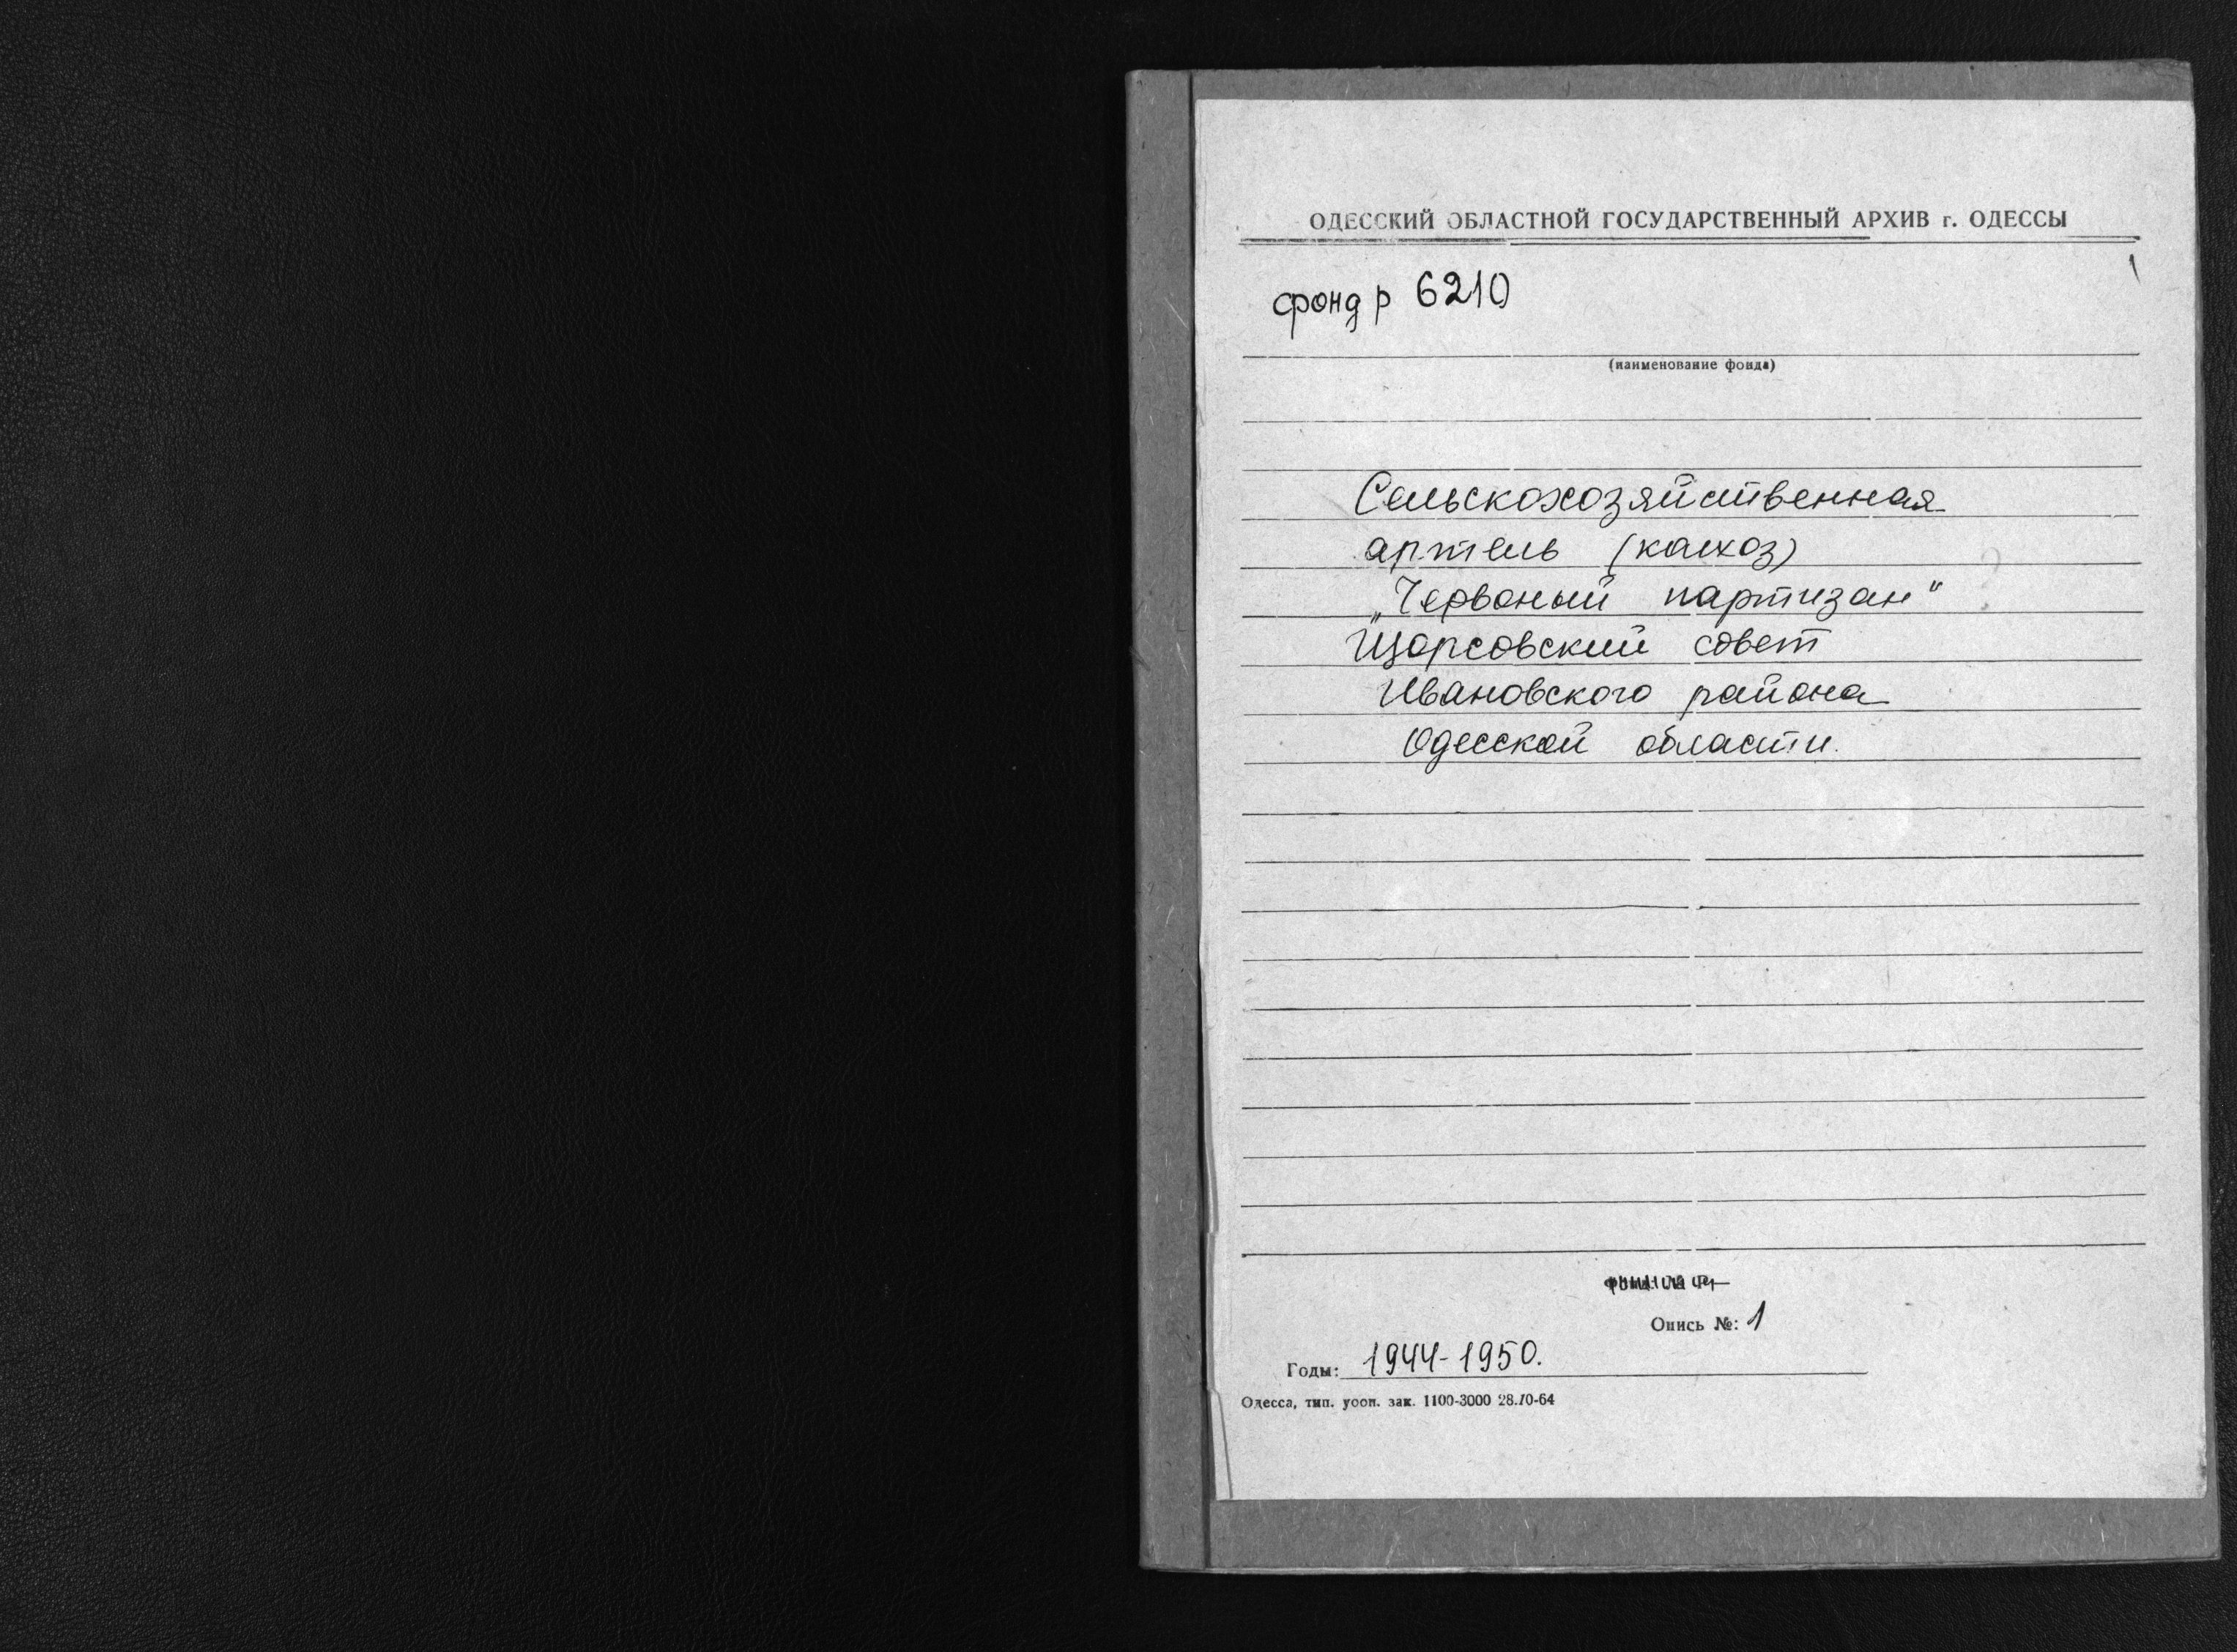 ОДЕССКИЙ ОБЛАСТНОЙ ГОСУДАРСТВЕННЫЙ АРХИВ г. ОДЕССЫ
фонд р 6210
(наименование фонда)
Сельскохозяйственная
артель (колхоз)
„Червоный партизан"
Щорсовский совет
Ивановского района
Одесской области.
Опись №: 1
Годы: 1944-1950.
Одесса, тип. уооп. зак. 1100-3000 28.10-64